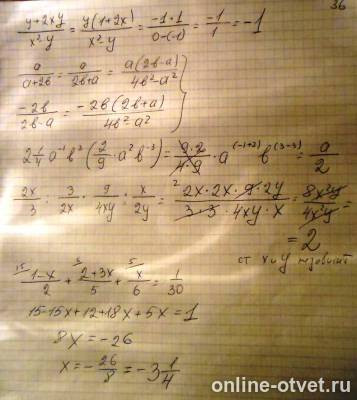 36
(y+2xy)/(x²-y) = y(1+2x)/(x²-y) = (-1·1)/(0-(-1)) = -1/1 = -1
a/(a+2в) = a/(2в+a) = a(2в-a)/(4в²-a²)
-2в/(2в-a) = -2в(2в+a)/(4в²-a²)
2 1/4 a⁻¹в³(2/9 · a²в⁻³) = (9·2)/(4·9) · a^(-1+2) в^(3-3) = a/2
2x/3 : 3/2x · 9/4xy : x/2y = (2x·2x·9·2y)/(3·3·4xy·x) = 8x²y/4x²y =
= 2
от x и y
(1-x)/2 + (2+3x)/5 + x/6 = 1/30
15-15x+12+18x+5x=1
8x = -26
x = -26/8 = -3 1/4
online-otvet.ru